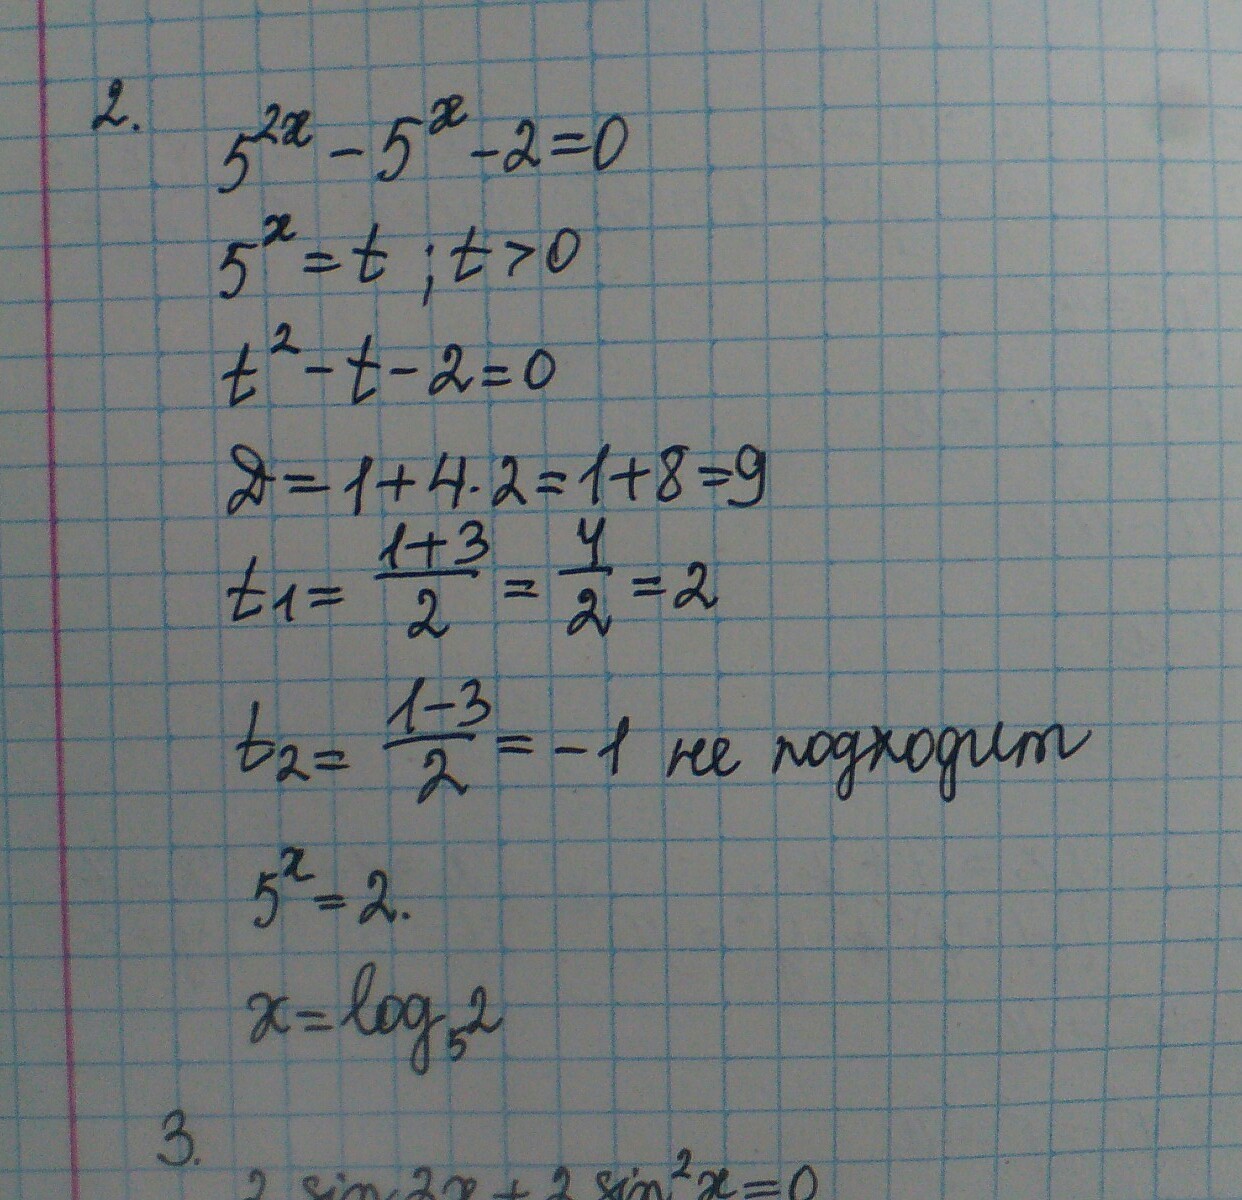 2.
5^{2x} - 5^x - 2 = 0
5^x = t ; t > 0
t^2 - t - 2 = 0
D = 1 + 4 · 2 = 1 + 8 = 9
t_1 = \frac{1+3}{2} = \frac{4}{2} = 2
t_2 = \frac{1-3}{2} = -1 не подходит
5^x = 2.
x = log_5 2
3.
2 sin 2x + 2 sin^2 x = 0